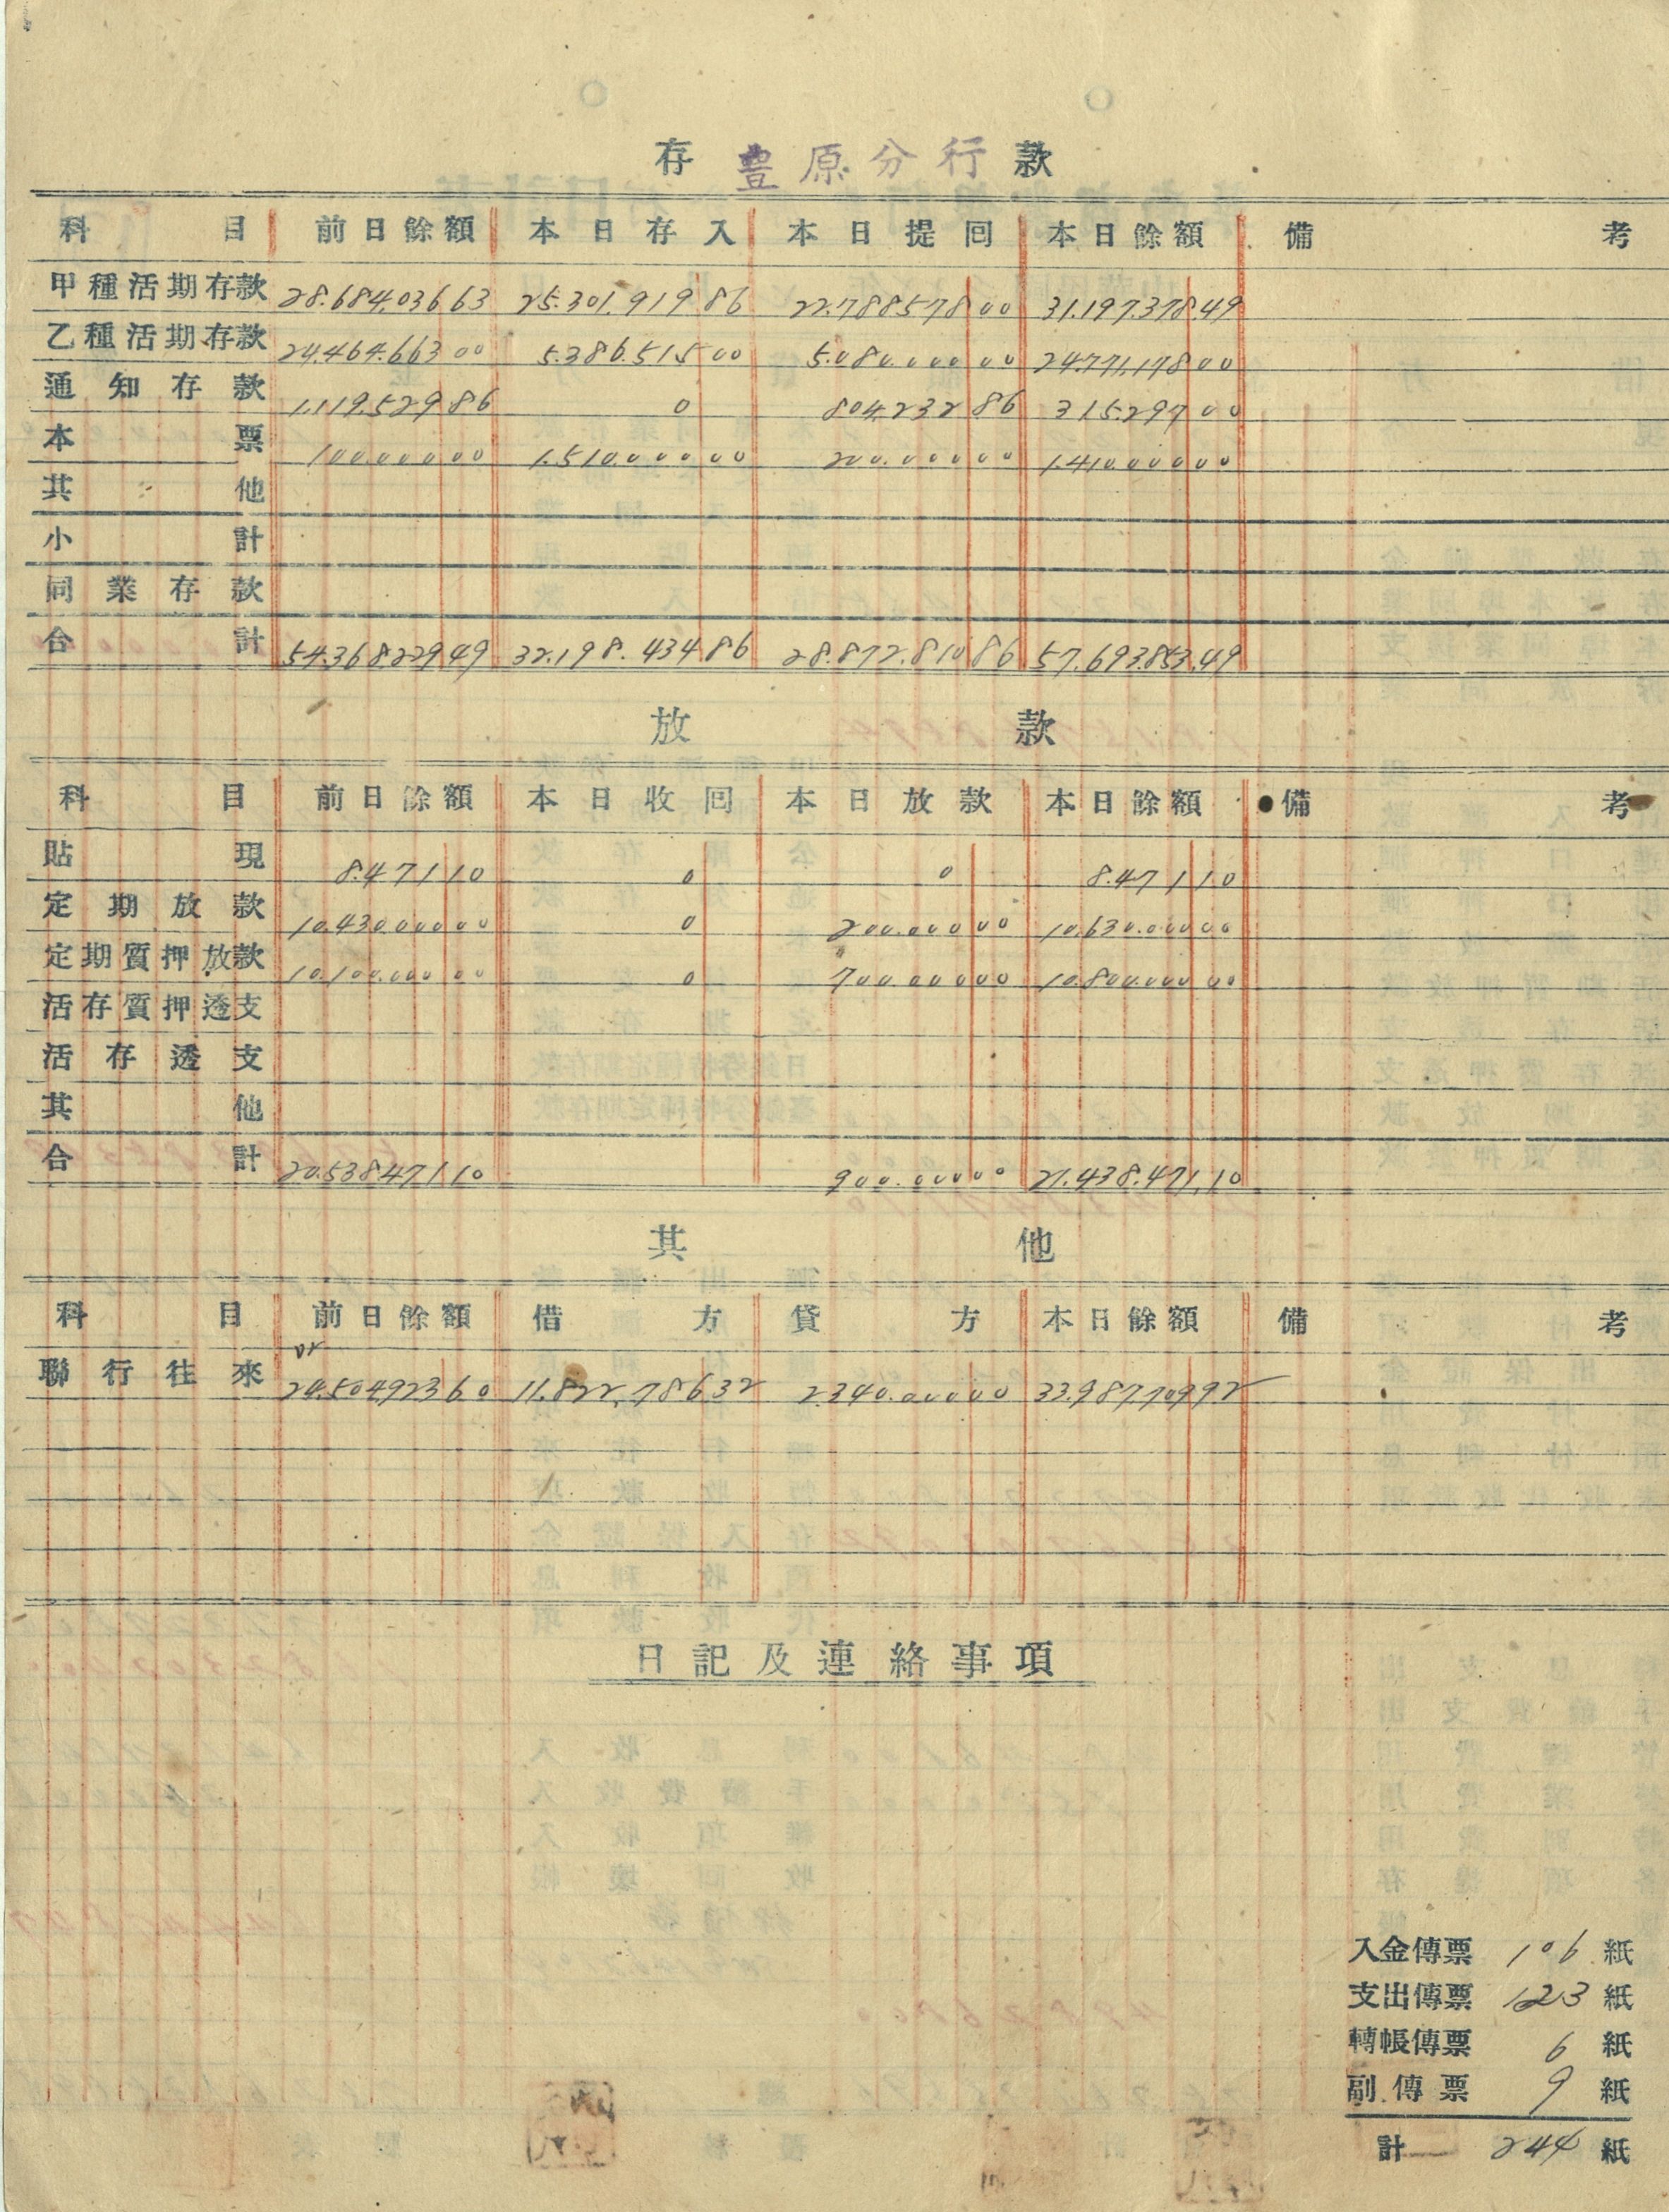 存 豊原分行 款
科目 前日餘額 本日存入 本日提回 本日餘額 備考
甲種活期存款 28.684.036 63 25.301.919 86 22.788578 00 31.197.378.49
乙種活期存款 24.464.663 00 5.386.515 00 5.080.000 00 24.771.178 00
通知存款 1.119.529 86 0 804.232 86 315.297 00
本票 100.000 00 1.510.000 00 200.000 00 1.410.000 00
其他
小計
同業存款
合計 54.368229 49 32.198.434 86 28.872.810 86 57.693.853.49
放款
科目 前日餘額 本日收回 本日放款 本日餘額 備考
貼現 8.471 10 0 0 8.471 10
定期放款 10.430.000 00 0 200.000 00 10.630.000 00
定期質押放款 10.100.000 00 0 700.000 00 10.800.000 00
活存質押透支
活存透支
其他
合計 20.538471 10 900.000 00 21.438.471.10
其他
科目 前日餘額 借方 貸方 本日餘額 備考
聯行往來 24.504923 60 11.822.786 32 2.340.000 00 33.987.709 92
日記及連絡事項
入金傳票 106 紙
支出傳票 123 紙
轉帳傳票 6 紙
副傳票 9 紙
計 244 紙